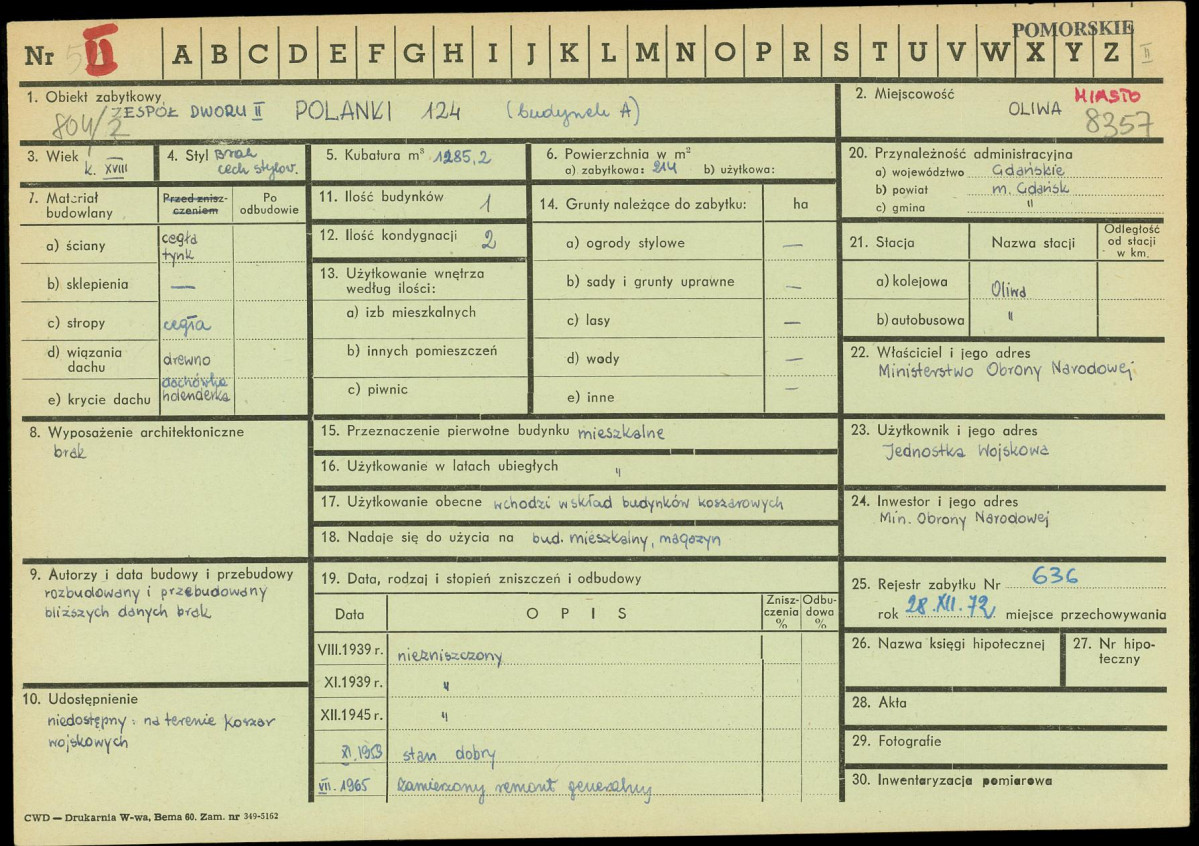 POMORSKIE
Nr II A B C D E F G H I J K L M N O P R S T U V W X Y Z II
1. Obiekt zabytkowy
ZESPÓŁ DWORU II POLANKI 124 (budynek A)
804/2
2. Miejscowość
OLIWA MIASTO
8357
3. Wiek
k. XVIII
4. Styl Brak
cech stylow.
5. Kubatura m³ 1285,2
6. Powierzchnia w m²
a) zabytkowa: 214 b) użytkowa:
7. Materiał budowlany
Przed zniszczeniem
Po odbudowie
a) ściany cegła
tynk
b) sklepienia —
c) stropy cegła
d) wiązania dachu drewno
e) krycie dachu dachówka
holenderka
8. Wyposażenie architektoniczne
brak
9. Autorzy i data budowy i przebudowy
rozbudowany i przebudowany
bliższych danych brak
10. Udostępnienie
niedostępny: na terenie koszar
wojskowych
11. Ilość budynków 1
12. Ilość kondygnacji 2
13. Użytkowanie wnętrza
według ilości:
a) izb mieszkalnych
b) innych pomieszczeń
c) piwnic
14. Grunty należące do zabytku: ha
a) ogrody stylowe —
b) sady i grunty uprawne —
c) lasy —
d) wody —
e) inne —
15. Przeznaczenie pierwotne budynku mieszkalne
16. Użytkowanie w latach ubiegłych "
17. Użytkowanie obecne wchodzi wskład budynków koszarowych
18. Nadaje się do użycia na bud. mieszkalny, magazyn
19. Data, rodzaj i stopień zniszczeń i odbudowy
Data OPIS Zniszczenia % Odbudowa %
VIII.1939 r. niezniszczony
XI.1939 r. "
XII.1945 r. "
XI.1953 stan dobry
VII.1965 Zamierzony remont generalny
20. Przynależność administracyjna
a) województwo Gdańskie
b) powiat m. Gdańsk
c) gmina "
21. Stacja Nazwa stacji Odległość
od stacji
w km.
a) kolejowa Oliwa
b) autobusowa "
22. Właściciel i jego adres
Ministerstwo Obrony Narodowej
23. Użytkownik i jego adres
Jednostka Wojskowa
24. Inwestor i jego adres
Min. Obrony Narodowej
25. Rejestr zabytku Nr 636
rok 28.XII.72 miejsce przechowywania
26. Nazwa księgi hipotecznej
27. Nr hipoteczny
28. Akta
29. Fotografie
30. Inwentaryzacja pomiarowa
CWD — Drukarnia W-wa, Bema 60. Zam. nr 349-5162